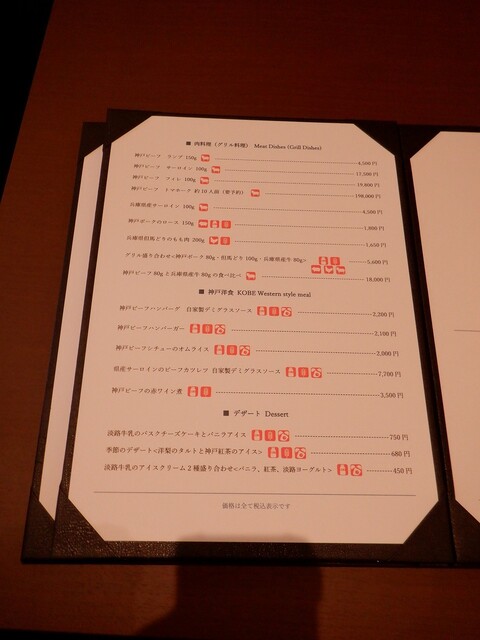 ■ 肉料理（グリル料理） Meat Dishes (Grill Dishes)
神戸ビーフ ランプ 150g 4,500円
神戸ビーフ サーロイン 100g 17,500円
神戸ビーフ フィレ 100g 19,800円
神戸ビーフ トマホーク 約10人前（要予約） 198,000円
兵庫県産サーロイン 100g 4,500円
神戸ポークのロース 150g 1,800円
兵庫県但馬どりのもも肉 200g 1,650円
グリル盛り合わせ<神戸ポーク 80g・但馬どり 100g・兵庫県産牛 80g> 5,600円
神戸ビーフ 80gと兵庫県産牛 80gの食べ比べ 18,000円
■ 神戸洋食 KOBE Western style meal
神戸ビーフハンバーグ 自家製デミグラスソース 2,200円
神戸ビーフハンバーガー 2,100円
神戸ビーフシチューのオムライス 2,000円
県産サーロインのビーフカツレツ 自家製デミグラスソース 7,700円
神戸ビーフの赤ワイン煮 3,500円
■ デザート Dessert
淡路牛乳のバスクチーズケーキとバニラアイス 750円
季節のデザート<洋梨のタルトと神戸紅茶のアイス> 680円
淡路牛乳のアイスクリーム2種盛り合わせ<バニラ、紅茶、淡路ヨーグルト> 450円
価格は全て税込表示です